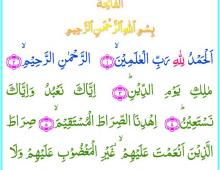 الفاتحة
بِسْمِ اللَّهِ الرَّحْمَٰنِ الرَّحِيمِ
الْحَمْدُ لِلَّهِ رَبِّ الْعَالَمِينَ ۝ الرَّحْمَٰنِ الرَّحِيمِ ۝
مَٰلِكِ يَوْمِ الدِّينِ ۝ إِيَّاكَ نَعْبُدُ وَإِيَّاكَ
نَسْتَعِينُ ۝ اهْدِنَا الصِّرَاطَ الْمُسْتَقِيمَ ۝ صِرَاطَ
الَّذِينَ أَنْعَمْتَ عَلَيْهِمْ غَيْرِ الْمَغْضُوبِ عَلَيْهِمْ وَلَا